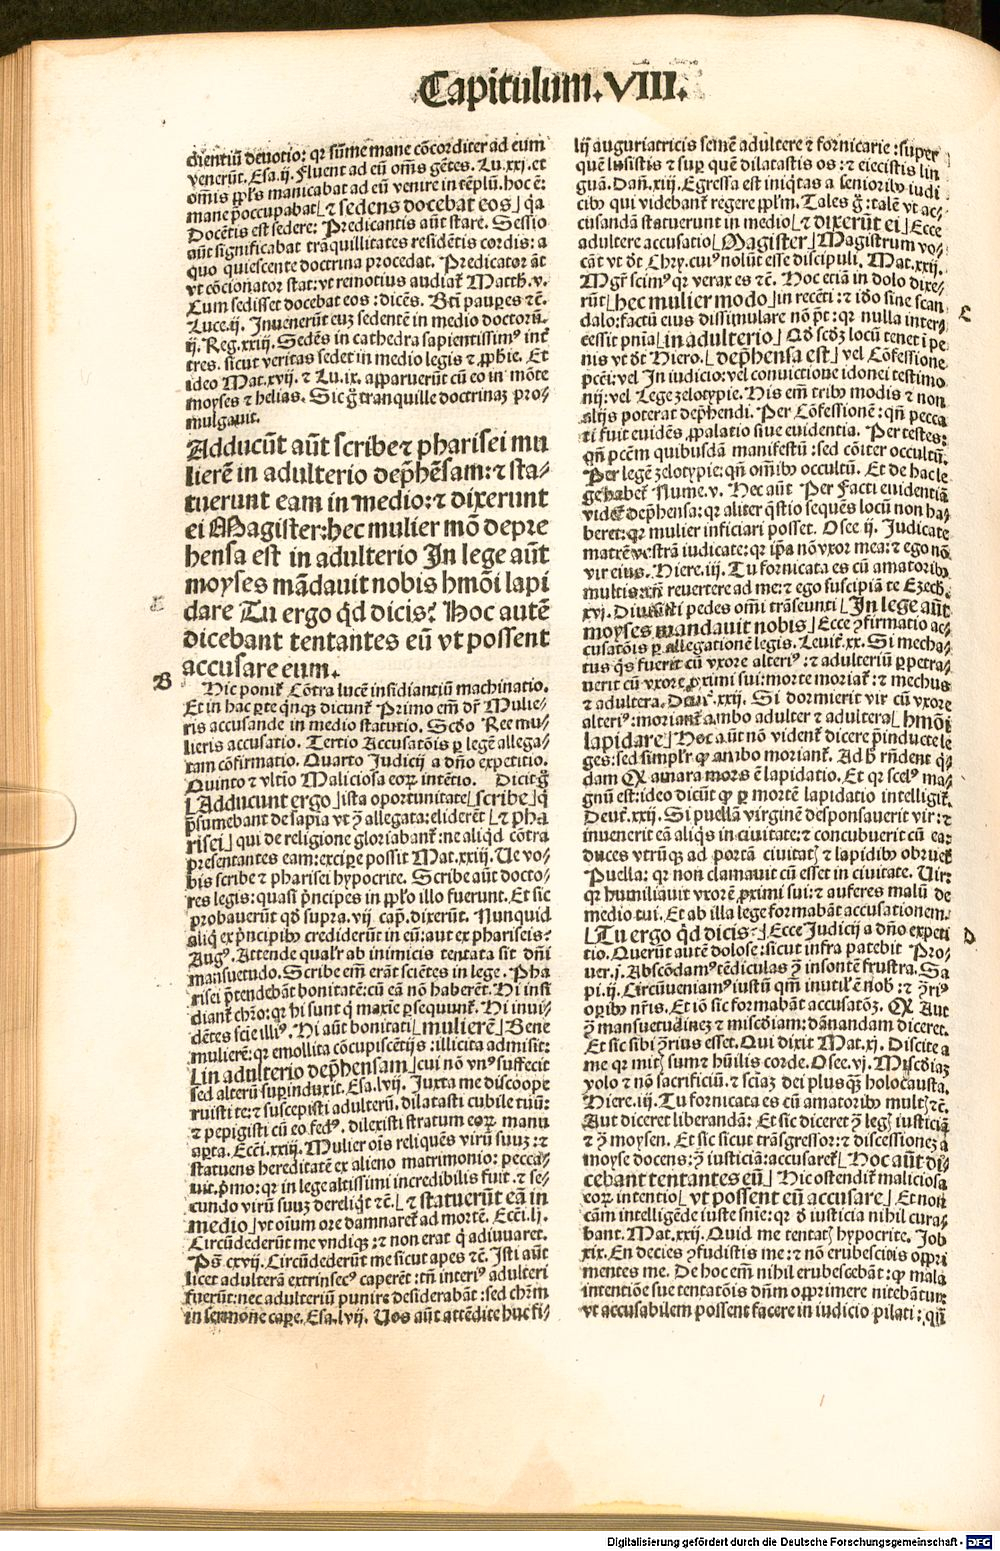 Capitulum.VIII.
dientiū deuotio: qr sūme mane cōcorditer ad eum
venerūt. Esa.ij. Fluent ad eū om̄s gētes. Lu.xxj. et
om̄is pp̄ls manicabat ad eū venire in tēplū. hoc ē:
mane p̄occupabat ⌊⁊ sedens docebat eos⌋ qa
Docētis est sedere: Predicantis aūt stare. Sessio
aūt significabat tranquillitates residētis cordis: a
quo quiescente doctrina procedat. Predicator āt
vt cōcionator stat: vt remotius audiat᷑ Matth.v.
Cum sedisset docebat eos: dicēs. Bt̄i paupes ⁊c̄.
Luce.ij. Inuenerūt euꝫ sedentē in medio doctorū.
ij. Reg.xxiij. Sedēs in cathedra sapientissimꝰ int̄
tres. sicut veritas sedet in medio legis ⁊ ꝓphie. Et
ideo Mat.xvij. ⁊ Lu.ix. apparuerūt cū eo in mōte
moyses ⁊ helias. Sic g̊ tranquille doctrinaꝫ pro-
mulgauit.
Adducūt aūt scribe ⁊ pharisei mu
lierē in adulterio dep̄hēsam: ⁊ sta-
tuerunt eam in medio: ⁊ dixerunt
ei Magister: hec mulier mō depre
hensa est in adulterio In lege aūt
moyses mādauit nobis hmōi lapi
dare Tu ergo qd̓ dicis? Hoc autē
dicebant tentantes eū vt possent
accusare eum.
B
Hic ponit᷑ Cōtra lucē insidiantiū machinatio.
Et in hac ꝑte qn̄qꝫ dicunt᷑ Primo em̄ dr̄ Mulie-
ris accusande in medio statutio. Scd̓o Ree mu-
lieris accusatio. Tertio Accusatōis ꝑ legē allega-
tam cōfirmatio. Quarto Judicij a dn̄o expetitio.
Quinto ⁊ vltīo Maliciosa eoꝝ intētio. Dicit g̊
⌊Adducunt ergo⌋ ista oportunitate ⌊scribe⌋ q̄
p̄sumebant de sapia vt ꝯ allegata: eliderēt ⌊⁊ pha
risei⌋ qui de religione gloriabant᷑: ne aliqd̓ cōtra
presentantes eam: excipe possit Mat.xxiij. Ue vo-
bis scribe ⁊ pharisei hypocrite. Scribe aūt docto-
res legis: quasi p̄ncipes in pp̄lo illo fuerunt. Et sic
probauerūt qd̓ supra. vij cap̄. dixerūt. Nunquid
aliq̄ ex p̄ncipibꝰ crediderūt in eū: aut ex phariseis?
Augꝰ. Attende qualr̄ ab inimicis tentata sit dn̄i
mansuetudo. Scribe em̄ erāt sciētes in lege. Pha
risei p̄tendebāt bonitatē: cū eā nō haberēt. Hi insi
diant᷑ chr̄o: qr hi sunt q̄ maxīe ꝑsequunt᷑. Hi inui-
dētes scīe illiꝰ. Hi aūt bonitati ⌊mulierē⌋ Bene
mulierē: qr emollita cōcupiscētijs: illicita admisit:
⌊in adulterio dep̄hensam⌋ cui nō vnꝰ suffecit
sed alterū supinduxit. Esa.lvij. Juxta me discoope
ruisti te: ⁊ suscepisti adulterū. dilatasti cubile tuū:
⁊ pepigisti cū eo fedꝰ. dilexisti stratum eoꝝ manu
aꝑta. Ecc̄i.xxiij. Mulier oīs reliquēs virū suuꝫ: ⁊
statuens hereditatē ex alieno matrimonio: pecca-
uit. p̄mo: qr in lege altissimi incredibilis fuit. ⁊ se-
cundo virū suuꝫ dereliqt̄ ⁊c̄. ⌊⁊ statuerūt eā in
medio⌋ vt oīum ore damnaret᷑ ad mortē. Ecc̄i.lj.
Circūdederūt me vndiqꝫ: ⁊ non erat q̄ adiuuaret.
Ps̄ cxvij. Circūdederūt me sicut apes ⁊c̄. Isti aūt
licet adulterā extrinsecꝰ caperēt: tn̄ interiꝰ adulteri
fuerūt: nec adulteriū punire desiderabāt: sed chr̄m
in sermone cape. Esa.lvij. Uos aūt attēdite huc fi-
lij auguriatricis semē adultere ⁊ fornicarie: super
quē lusistis ⁊ suꝑ quē dilatastis os: ⁊ eiecistis lin
guā. Dañ.xiij. Egressa est iniqͥtas a senioribꝰ iudi
cibꝰ qui videbant᷑ regere pp̄lm. Tales g̊: talē vt ac-
cusandā statuerunt in medio ⌊⁊ dixerūt ei⌋ Ecce
adultere accusatio ⌊Magister⌋ Magistrum vo-
cāt vt dt̄ Chry. cuiꝰ nolūt esse discipuli. Mat.xxij.
Mgr̄ scimꝰ qr verax es ⁊c̄. Hoc etiā in dolo dixe-
rūt ⌊hec mulier modo⌋ in recēti: ⁊ iō sine scan
dalo: factū eius dissimulare nō pt̄: qr nulla inter-
cessit pnīa ⌊in adulterio⌋ Qd̓ scd̓ꝫ locū tenet i pe
nis vt dt̄ Hiero. ⌊dep̄hensa est⌋ vel Cōfessione
pcc̄i: vel In iudicio: vel conuictione idonei testimo
nij: vel Lege zelotypie. His em̄ tribꝰ modis ⁊ non
alijs poterat dep̄hendi. Per Cōfessionē: qn̄ pecca
ti fuit euidēs, ꝓpalatio siue euidentia. Per testes:
qn̄ pcc̄m quibusdā manifestū: sed cōiter occultū.
Per legē zelotypie: qn̄ om̄ibꝰ occultū. Et de hac le
ge habet᷑ Nume.v. Hec aūt Per Facti euidentiā
videt᷑ dep̄hensa: qr aliter q̄stio sequēs locū non ha-
beret: qr mulier inficiari posset. Osee ij. Judicate
matrē vestrā iudicate: qr ip̄a nō vxor mea: ⁊ ego nō
vir eius. Hiere.iij. Tu fornicata es cū amatoribꝰ
multis: tn̄ reuertere ad me: ⁊ ego suscipiā te Ezech.
xvj. Diuisisti pedes om̄i trāseunti ⌊In lege aūt
moyses mandauit nobis⌋ Ecce ꝯfirmatio ac-
cusatōis ꝑ allegationē legis. Leuit.xx. Si mecha-
tus q̄s fuerit cū vxore alteriꝰ: ⁊ adulteriū ꝑpetra-
uerit cū vxore ꝓximi sui: morte moriat᷑: ⁊ mechus
⁊ adultera. Deut̄.xxij. Si dormierit vir cū vxore
alteriꝰ: moriant᷑ ambo adulter ⁊ adultera ⌊hmōi
lapidare⌋ Hoc aūt nō vident᷑ dicere p̄inducte le
ges: sed simplr̄ ꝙ ambo moriant᷑. Ad h̓ rn̄dent q̄-
dam Qꝛ amara mors ē lapidatio. Et qr scelꝰ ma-
gnū est: ideo dicūt ꝙ ꝑ mortē lapidatio intelligit᷑.
Deut̄.xxij. Si puellā virginē desponsauerit vir: ⁊
inuenerit eā aliqͥs in ciuitate: ⁊ concubuerit cū ea:
duces vtrūqꝫ ad portā ciuitatꝭ ⁊ lapidibꝰ obruet᷑
Puella: qr non clamauit cū esset in ciuitate. Uir:
qr humiliauit vxorē ꝓximi sui: ⁊ auferes malū de
medio tui. Et ab illa lege formabāt accusationem.
⌊Tu ergo qd̓ dicis?⌋ Ecce Judicij a dn̄o expeti
tio. Querūt autē dolose: sicut infra patebit Pro-
uer.j. Abscōdamꝰ tēdiculas ꝯ insontē frustra. Sa
pi.ij. Circūueniamꝰ iustū qm̄ inutil̓ ē nob̓: ⁊ ꝯriꝰ
oꝑibꝰ nr̄is. Et iō sic formabāt accusatōꝫ. Qꝛ Aut
ꝯ mansuetudinez ⁊ miscd̓iam: dānandam diceret.
Et sic sibi ꝯrius esset. Qui dixit Mat.xj. Discite a
me qr mitꝭ sum ⁊ hūilis corde. Osee.vj. Miscd̓iaꝫ
volo ⁊ nō sacrificiū. ⁊ sciāꝫ dei plusqꝫ holocausta.
Hiere.iij. Tu fornicata es cū amatoribꝰ multꝭ ⁊c̄.
Aut diceret liberandā: Et sic diceret ꝯ legꝭ iusticiā
⁊ ꝯ moysen. Et sic sicut trāsgressor: ⁊ discessionez a
moyse docens: ꝯ iusticiā: accusaret᷑ ⌊Hoc aūt di-
cebant tentantes eū⌋ Hic ostendit᷑ maliciosa
eoꝝ intentio ⌊vt possent eū accusare⌋ Et non
cām intelligēde iuste snīe: qr d̓ iusticia nihil cura-
bant. Mat.xxij. Quid me tentatꝭ hypocrite. Job
xix. En decies ꝯfudistis me: ⁊ nō erubescitis oppri
mentes me. De hoc em̄ nihil erubescebāt: ꝙ mala
intentiōe sue tentatōis dn̄m opprimere nitebātur
vt accusabilem possent facere in iudicio pilati: qn̄
C
D
Digitalisierung gefördert durch die Deutsche Forschungsgemeinschaft - DFG